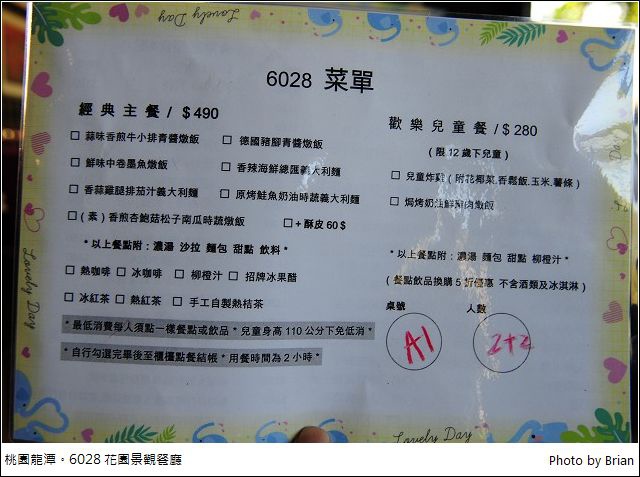 Lovely Day
6028 菜單
經典主餐/ $490
□ 蒜味香煎牛小排青醬燉飯 □ 德國豬腳青醬燉飯
□ 鮮味中卷墨魚燉飯 □ 香辣海鮮總匯義大利麵
□ 香蒜雞腿排茄汁義大利麵 □ 原烤鮭魚奶油時蔬義大利麵
□ (素) 香煎杏鮑菇松子南瓜時蔬燉飯 □ + 酥皮 60 $
* 以上餐點附:濃湯 沙拉 麵包 甜點 飲料 *
□ 熱咖啡 □ 冰咖啡 □ 柳橙汁 □ 招牌冰果醋
□ 冰紅茶 □ 熱紅茶 □ 手工自製熱桔茶
* 最低消費每人須點一樣餐點或飲品 * 兒童身高 110 公分下免低消 *
* 自行勾選完畢後至櫃檯點餐結帳 * 用餐時間為 2 小時 *
歡樂兒童餐/ $ 280
(限 12 歲下兒童)
□ 兒童炸雞 (附花椰菜.香鬆飯.玉米.薯條)
□ 焗烤奶油鮮雞肉燉飯
* 以上餐點附:濃湯 麵包 甜點 柳橙汁 *
(餐點飲品換購 5 折優惠 不含酒類及冰淇淋)
桌號 人數
A1 2+2
Lovely Day
Lovely Day
桃園龍潭。6028 花園景觀餐廳
Photo by Brian